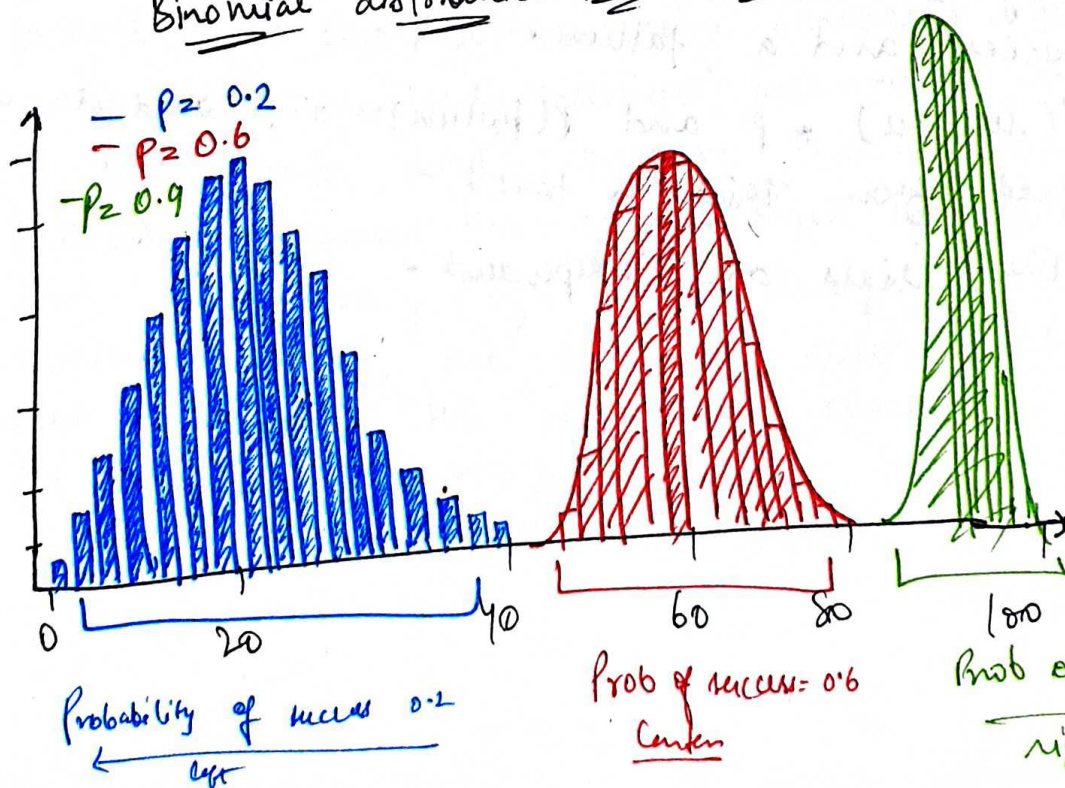 Binomial
— p = 0.2
- p = 0.6
- p = 0.9
0 20 40 60 80 100
Probability of success 0.2
left
Prob of success = 0.6
Center
Prob